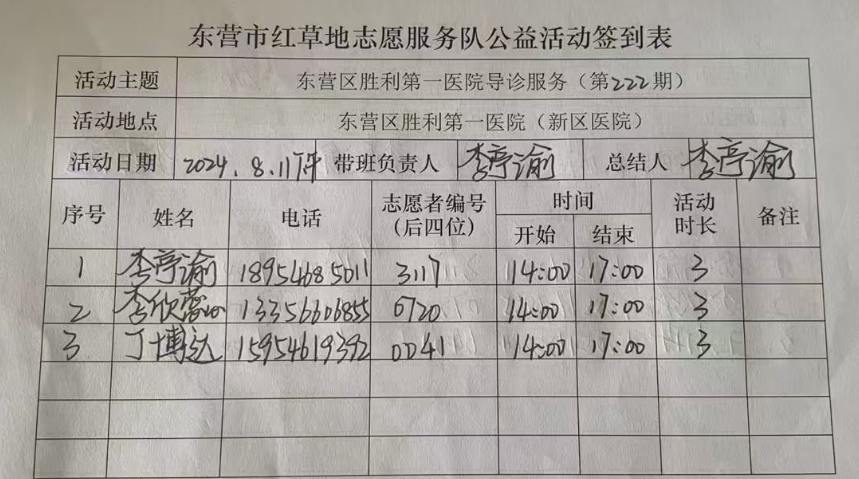 东营市红草地志愿服务队公益活动签到表
活动主题 东营区胜利第一医院导诊服务（第222期）
活动地点 东营区胜利第一医院（新区医院）
活动日期 2024.8.11下午 带班负责人 李亭谕 总结人 李亭谕
序号 姓名 电话 志愿者编号（后四位） 时间 开始 结束 活动时长 备注
1 李亭谕 18954685011 3117 14:00 17:00 3
2 李欣 13356606855 6720 14:00 17:00 3
3 丁博达 15954619392 0041 14:00 17:00 3